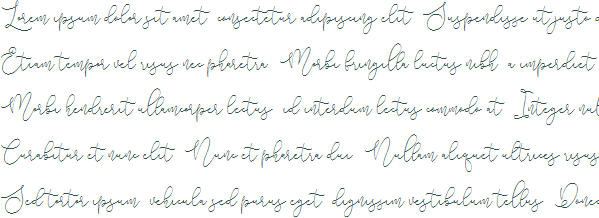 Lorem ipsum dolor sit amet consectetur adipiscing elit Suspendisse ut justo
Etiam tempor vel risus nec pharetra Morbi fringilla luctus nibh a imperdiet
Morbi hendrerit ullamcorper lectus id interdum lectus commodo at Integer nul
Curabitur et nunc elit Nunc et pharetra dui Nullam aliquet ultrices risus
Sed tortor ipsum vehicula sed purus eget dignissim vestibulum tellus Donec